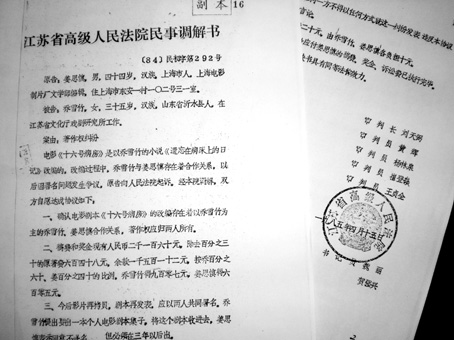 副本 16
江苏省高级人民法院民事调解书
(84)民初字第292号
原告:姜思慎,男,四十四岁,汉族,上海市人,上海电影
制片厂文学部编辑,住上海市东安一村一〇二号三一室。
被告:乔雪竹,女,三十五岁,汉族,山东省沂水县人,在
江苏省文化厅戏剧研究所工作。
案由:著作权纠纷
电影《十六号病房》是以乔雪竹的小说《遗忘在病床上的日
记》改编的。改编过程中,乔雪竹与姜思慎存在着合作关系,以
后因署名问题发生争议,原告向人民法院起诉。经本院调解,双
方自愿达成协议如下:
一、确认电影剧本《十六号病房》的改编存在着以乔雪竹为
主的乔雪竹、姜思慎合作关系。著作权应归两人所有。
二、稿费和奖金现有人民币二千一百六十元,除去百分之三
十的原著费六百四十八元,余款一千五百一十二元,按乔百分之
六十、姜百分之四十的比例,乔雪竹得九百零七元,姜思慎得六
百零五元。
三、今后影片再拷贝,剧本再发表,应以两人共同署名。乔
雪竹提出要出一本个人电影剧本集子,将这个剧本收进去,姜思
但必须在三年以后出。
一方不得以任何方式就这一纠纷
二十元,由乔雪竹、姜思慎各负担十元。
审判长 刘天弼
审判员 黄辉
审判员 杨林泉
审判员
审判员 王贞全
江苏省高级人民法院
八五年四月十五日
书记员